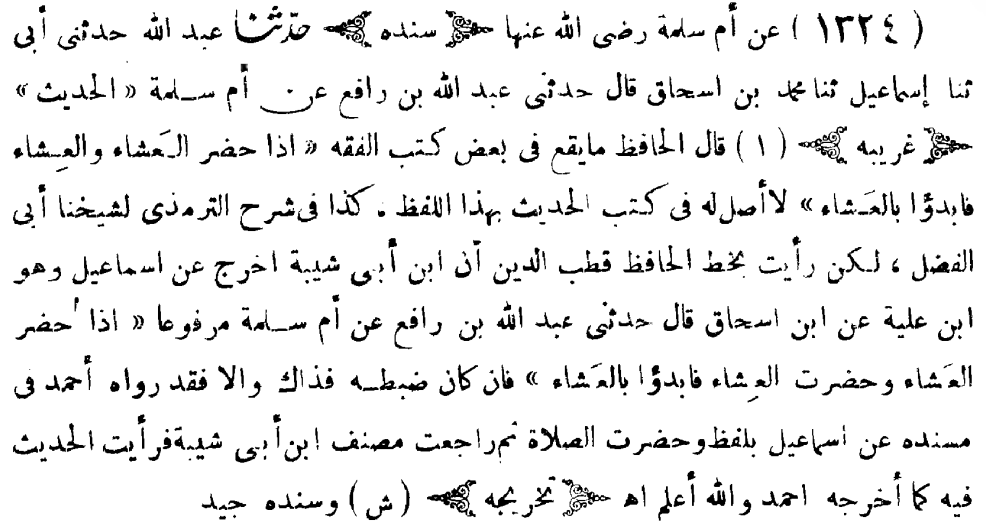 ( ١٣٢٤ ) عن أم سلمة رضى الله عنها ﴿ سنده ﴾ حدّثنا عبد الله حدثنى أبى
ثنا إسماعيل ثنا محمد بن اسحاق قال حدثنى عبد الله بن رافع عن أم سلمة « الحديث »
﴿ غريبه ﴾ ( ١ ) قال الحافظ مايقع فى بعض كتب الفقه « اذا حضر العَشاء والعِشاء
فابدؤا بالعَشاء » لاأصل له فى كتب الحديث بهذا اللفظ . كذا فى شرح الترمذى لشيخنا أبى
الفضل ، لكن رأيت بخط الحافظ قطب الدين أن ابن أبى شيبة اخرج عن اسماعيل وهو
ابن علية عن ابن اسحاق قال حدثنى عبد الله بن رافع عن أم سلمة مرفوعا « اذا حضر
العَشاء وحضرت العِشاء فابدؤا بالعَشاء » فان كان ضبطه فذاك والا فقد رواه أحمد فى
مسنده عن اسماعيل بلفظ وحضرت الصلاة ثم راجعت مصنف ابن أبى شيبة فرأيت الحديث
فيه كما أخرجه احمد والله أعلم اه ﴿ تخريجه ﴾ ( ش ) وسنده جيد